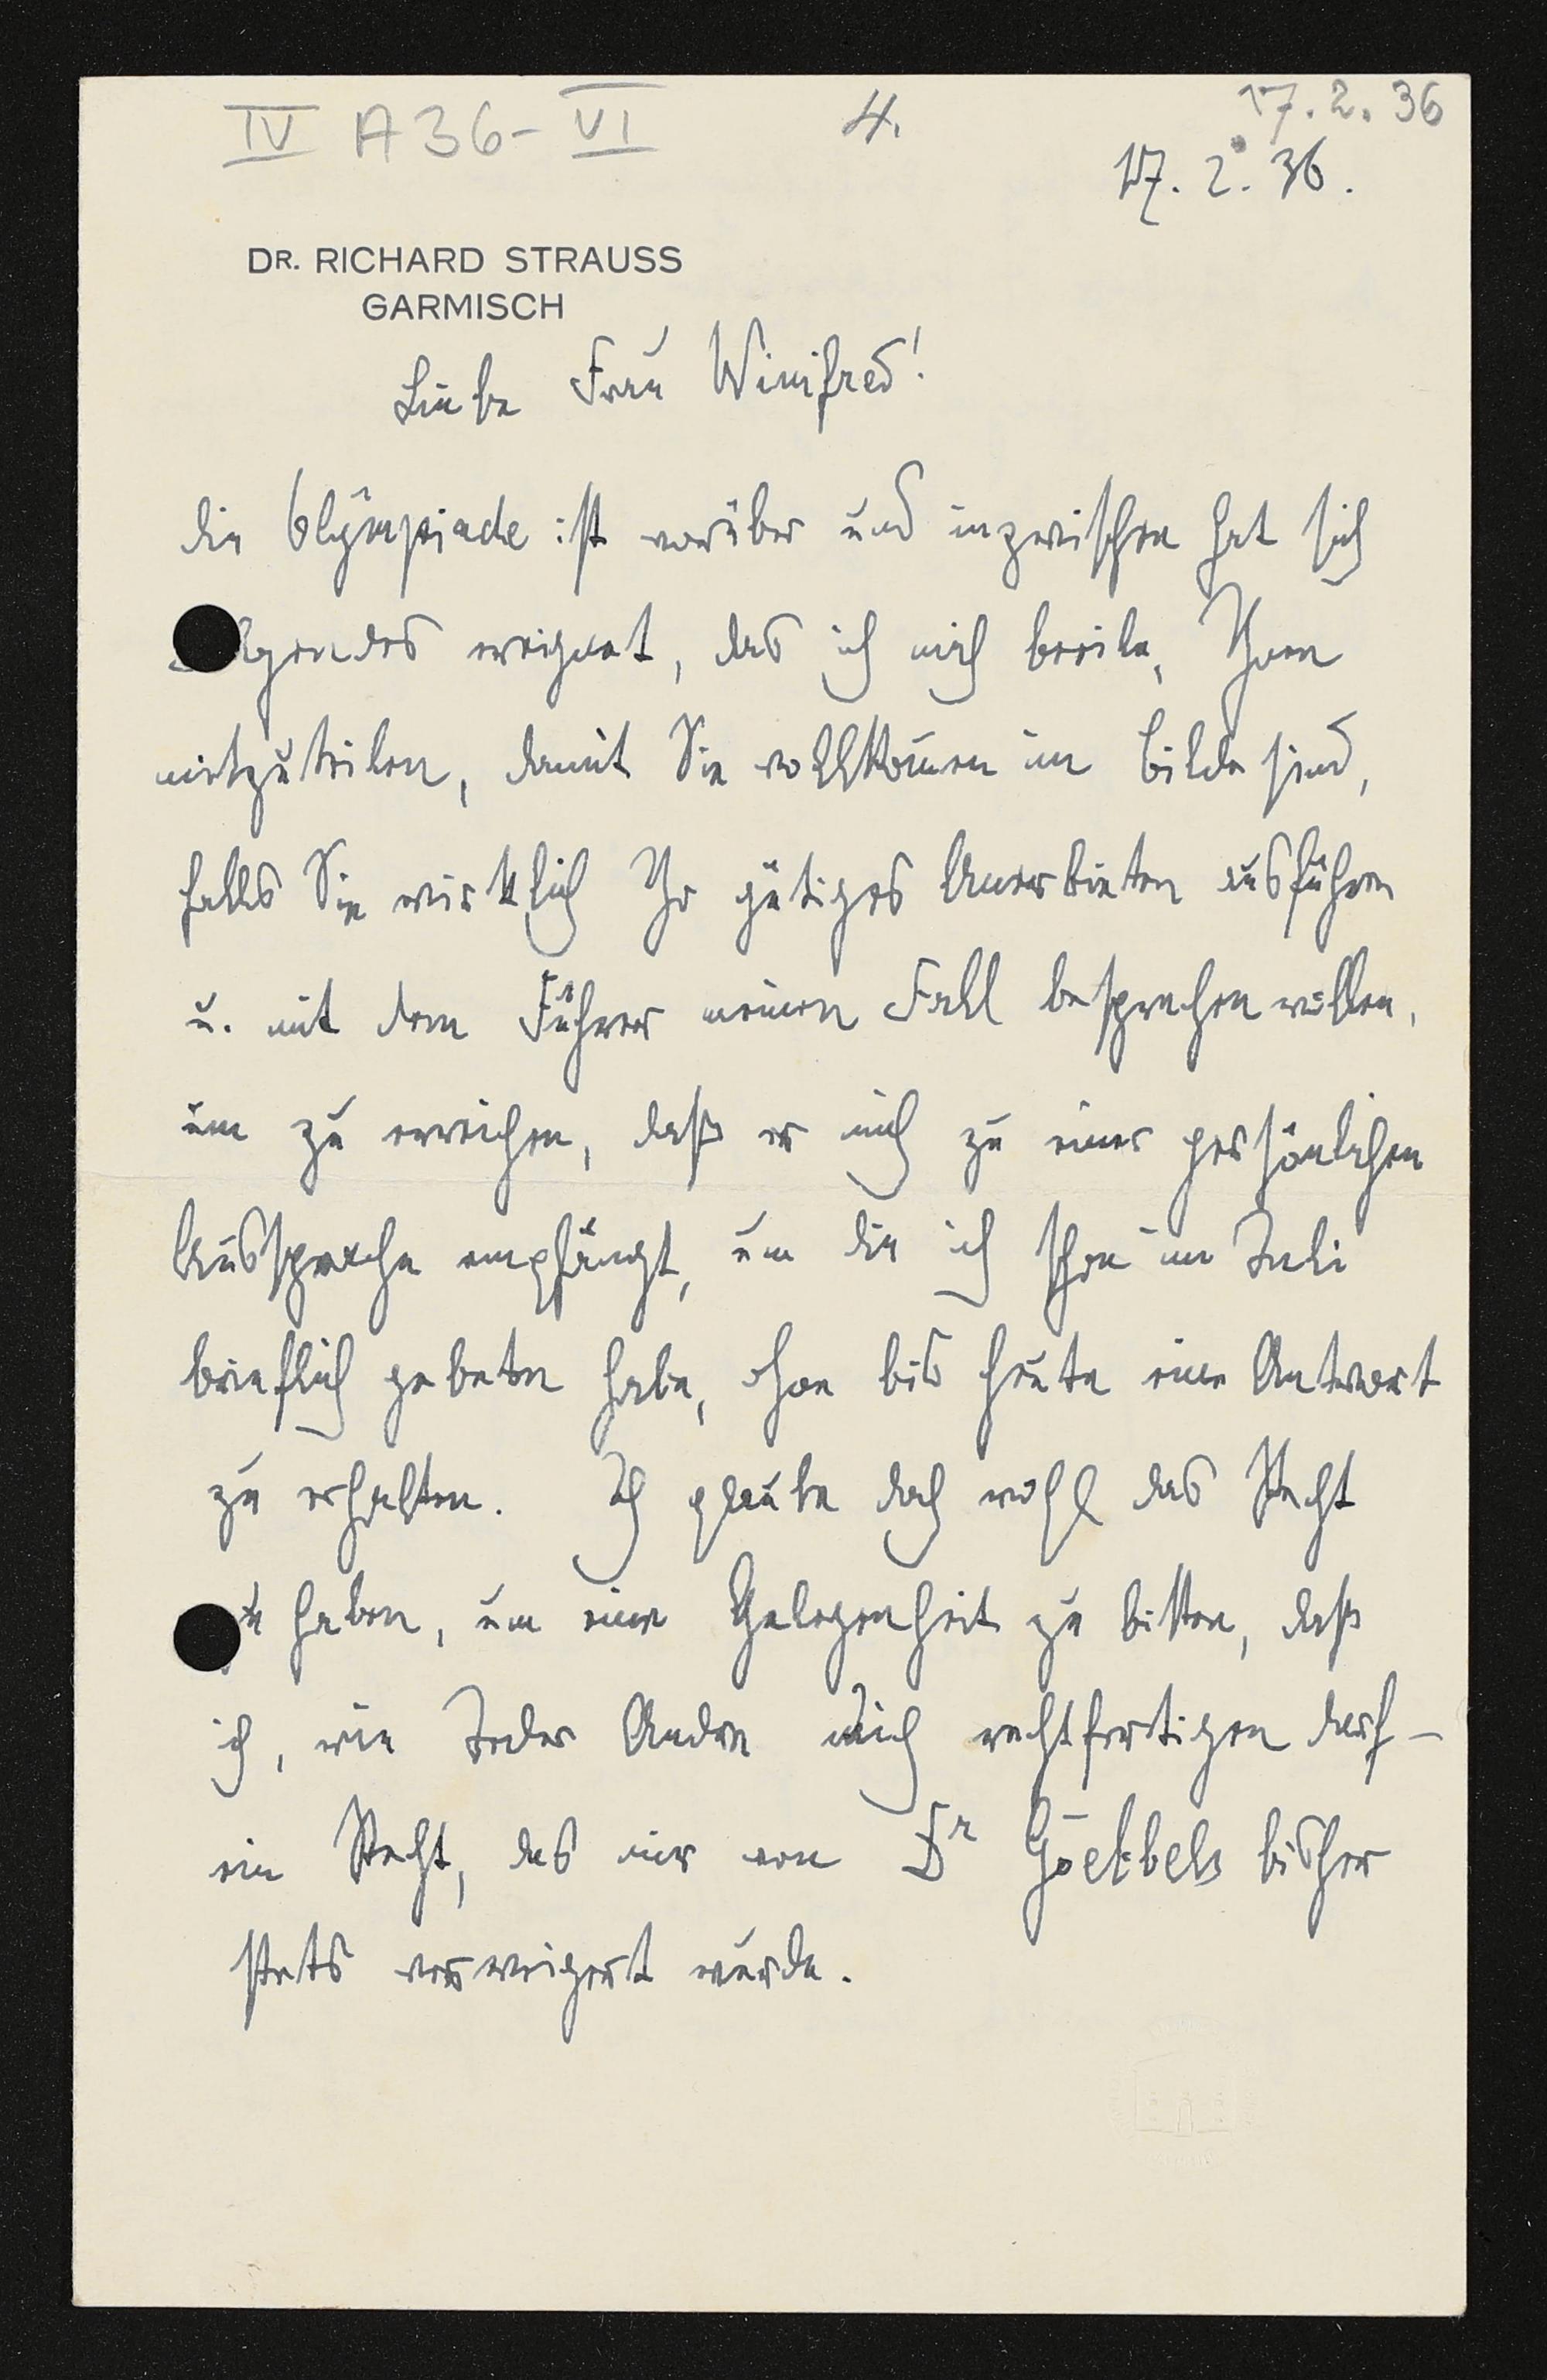 IV A 36 - VI 4. 17.2.36
17. 2. 36.
DR. RICHARD STRAUSS
GARMISCH
Liebe Frau Winifred!
die Olympiade ist vorüber und inzwischen hat sich
lgendes ereignet, das ich mich beeile, Ihnen
mitzuteilen, damit Sie vollkom̄en im Bilde sind,
falls Sie wirklich Ihr gütiges Anerbieten ausführen
u. mit dem Führer meinen Fall besprechen wollen,
um zu erreichen, daß er mich zu einer persönlichen
Aussprache empfängt, um die ich schon im Juli
brieflich gebeten habe, ohne bis heute eine Antwort
zu erhalten. Ich glaube doch wohl das Recht
zu haben, um eine Gelegenheit zu bitten, daß
ich, wie Jeder Andre mich rechtfertigen darf –
ein Recht, das mir von Dr Goebbels bisher
stets verweigert wurde.